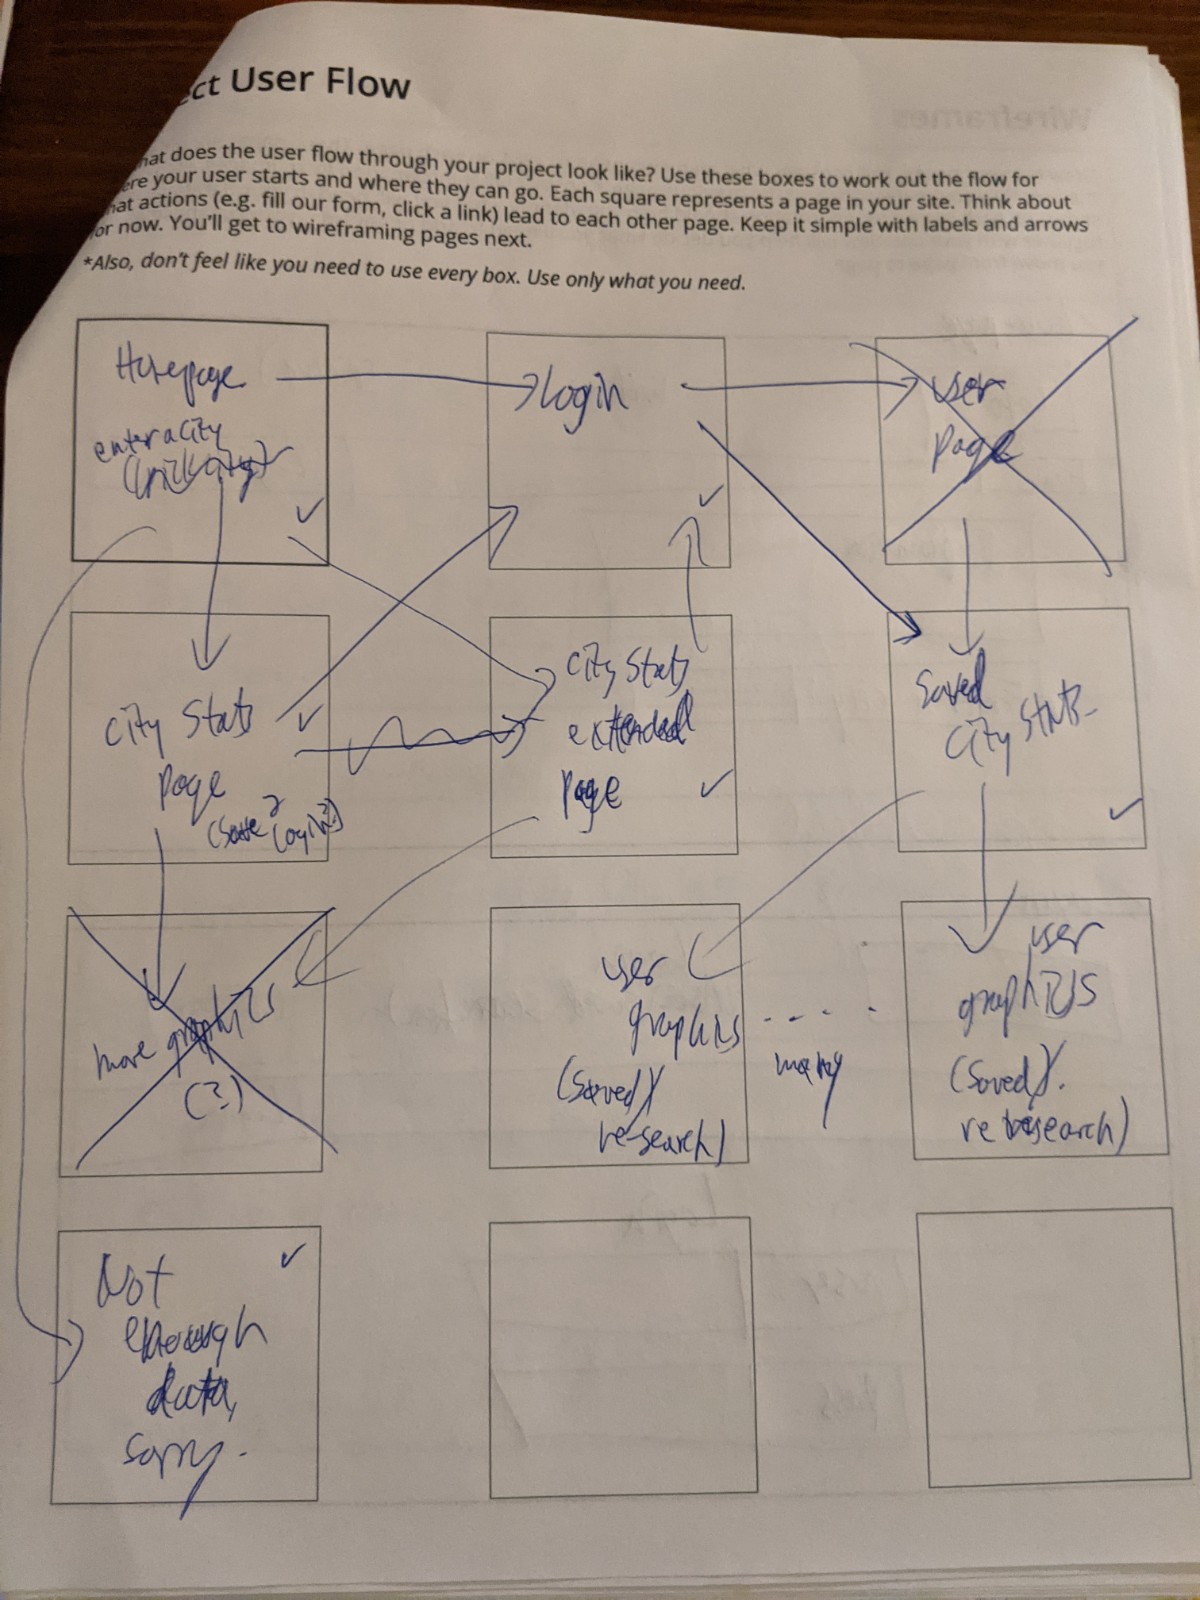 ct User Flow
hat does the user flow through your project look like? Use these boxes to work out the flow for
ere your user starts and where they can go. Each square represents a page in your site. Think about
hat actions (e.g. fill our form, click a link) lead to each other page. Keep it simple with labels and arrows
or now. You'll get to wireframing pages next.
*Also, don't feel like you need to use every box. Use only what you need.
Homepage
enter a city
Login
user
page
City Stats
page
(Save?
Login?)
City Stats
extended
page
Saved
City Stats
more graphics
(?)
user
graphics
(Saved)/
re-search)
....
many
user
graphics
(Saved)/.
re search)
Not
enough
data,
sorry.